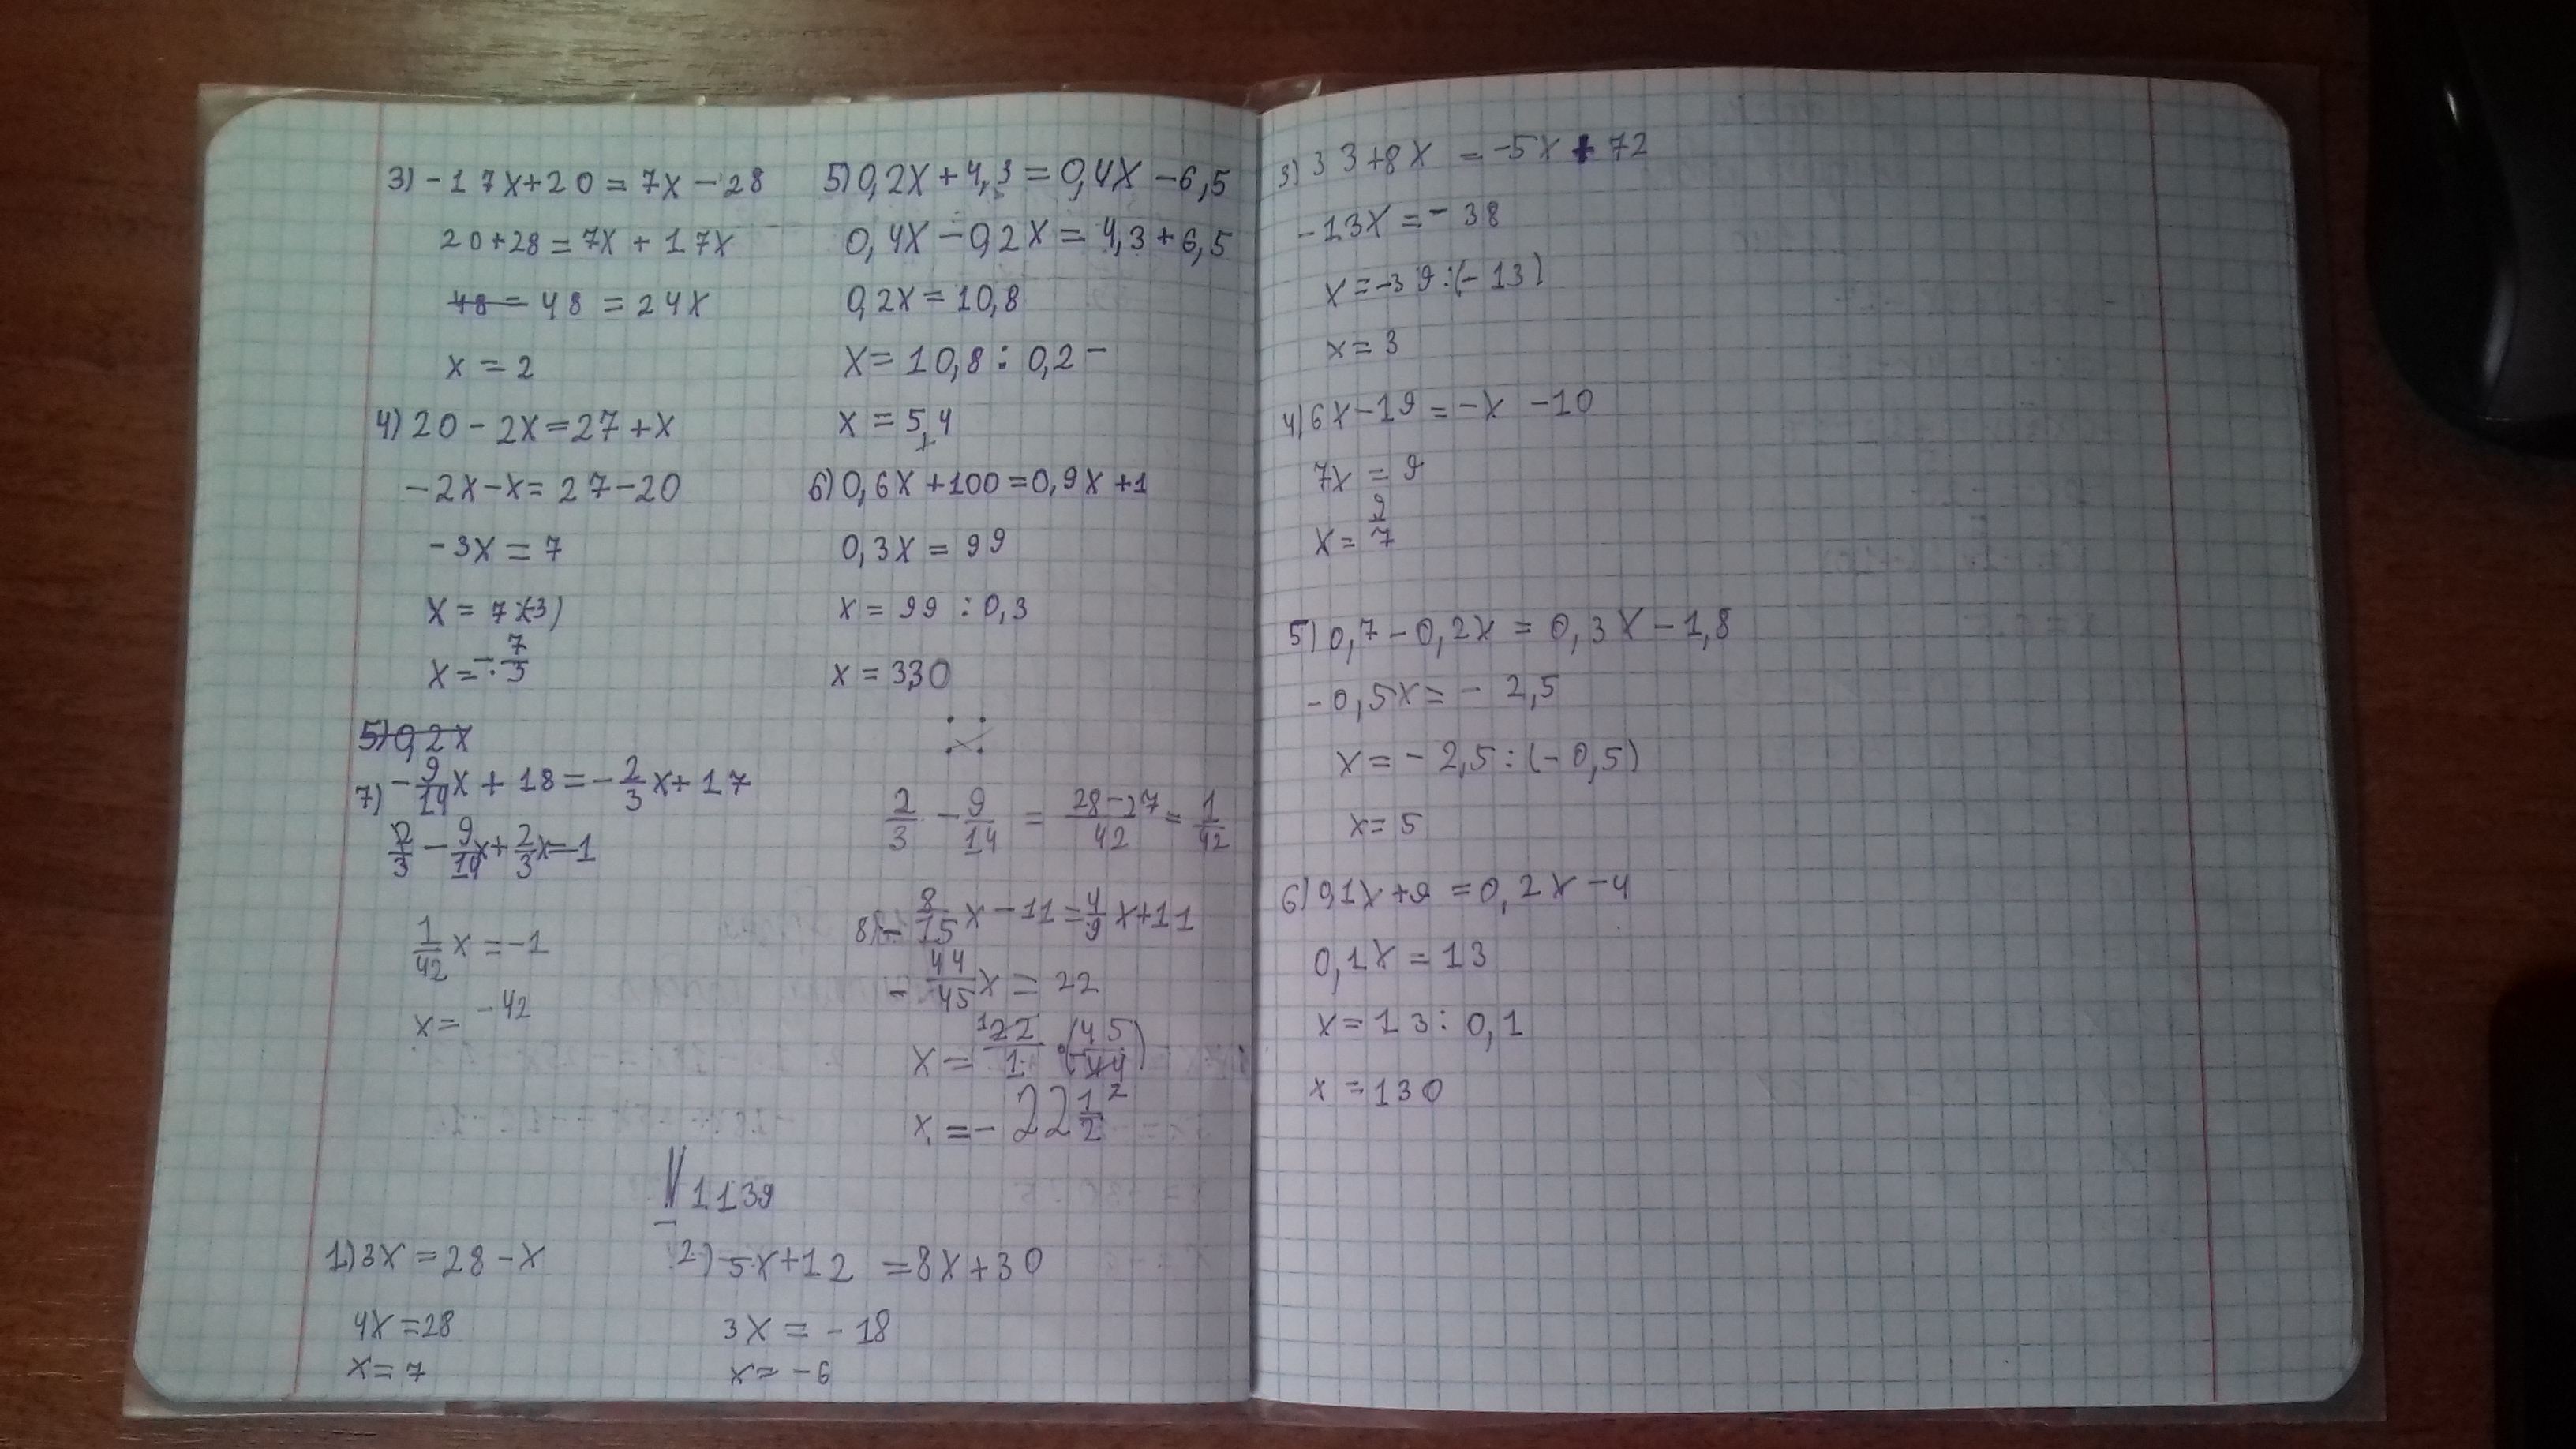 3) -17x+20=7x-28
20+28=7x+17x
48= 48=24x
x=2
4) 20-2x=27+x
-2x-x=27-20
-3x=7
x=7:(-3)
x=-7/3
5) 0,2x
7) -9/14x+18=-2/3x+17
2/3-9/14x+2/3x=-1
1/42x=-1
x=-42
5) 0,2x+4,3=0,4x-6,5
0,4x-0,2x=4,3+6,5
0,2x=10,8
x=10,8:0,2-
x=5,4
6) 0,6x+100=0,9x+1
0,3x=99
x=99:0,3
x=330
2/3-9/14=28-27/42=1/42
8) -8/15x-11=4/9x+11
-44/45x=22
x=22/1·(-45/44)
x=-22 1/2
N 1139
1) 3x=28-x
4x=28
x=7
2) 5x+12=8x+30
3x=-18
x=-6
3) 33+8x=-5x+72
-13x=-38
x=-39:(-13)
x=3
4) 6x-19=-x-10
7x=9
x=9/7
5) 0,7-0,2x=0,3x-1,8
-0,5x=-2,5
x=-2,5:(-0,5)
x=5
6) 0,1x+9=0,2x-4
0,1x=13
x=13:0,1
x=130